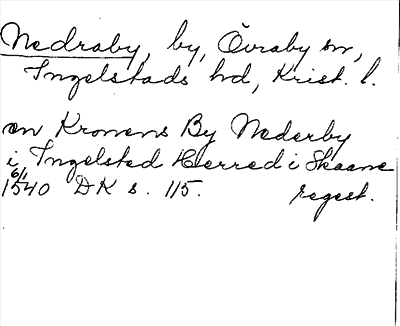 Nedraby, by, Övraby sn,
Ingelstads hd, Krist. l.
en Kronens By Nederby
i Ingelsted Herred i Skaane
6/1 1540 DK s. 115. regest.